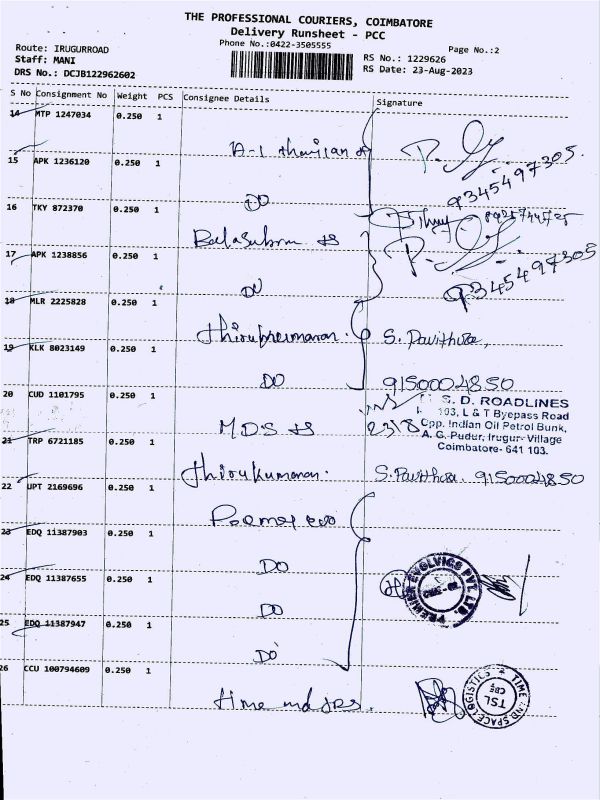 THE PROFESSIONAL COURIERS, COIMBATORE
Delivery Runsheet - PCC
Phone No.:0422-3505555
Page No.:2
Route: IRUGURROAD
Staff: MANI
DRS No.: DCJB122962602
RS No.: 1229626
RS Date: 23-Aug-2023
S No Consignment No Weight PCS Consignee Details Signature
14 MTP 1247034 0.250 1
A-1
9345497305
15 APK 1236120 0.250 1
DO
16 TKY 872370 0.250 1
17 APK 1238856 0.250 1
DO
9345497305
18 MLR 2225828 0.250 1
S. Pavithra,
19 KLK 8023149 0.250 1
DO
9150004850
20 CUD 1101795 0.250 1
MDS
S. D. ROADLINES
103, L & T Byepass Road
Opp. Indian Oil Petrol Bunk,
A. G. Pudur, Irugur- Village
Coimbatore- 641 103.
21 TRP 6721185 0.250 1
Thirukumaran.
S. Pavithra 9150004850
22 UPT 2169696 0.250 1
23 EDQ 11387903 0.250 1
DO
24 EDQ 11387655 0.250 1
DO
PREMIER EVOLVICS PVT. LTD.
25 EDQ 11387947 0.250 1
DO
26 CCU 100794609 0.250 1
time and
TIME AND SPACE LOGISTICS
TSL
CBE